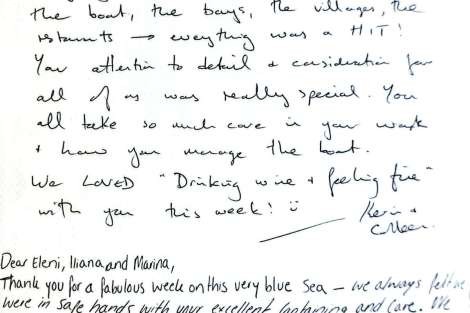 the boat, the bays, the villages, the
restaurants → everything was a HIT!
Your attention to detail + consideration for
all of us was really special. You
all take so much care in your work
+ how you manage the boat.
We LOVED "Drinking wine + feeling fine"
with you this week! ü
Kevin +
Colleen
Dear Eleni, Iliana and Marina,
Thank you for a fabulous week on this very blue Sea – we always felt we
were in safe hands with your excellent and care. We